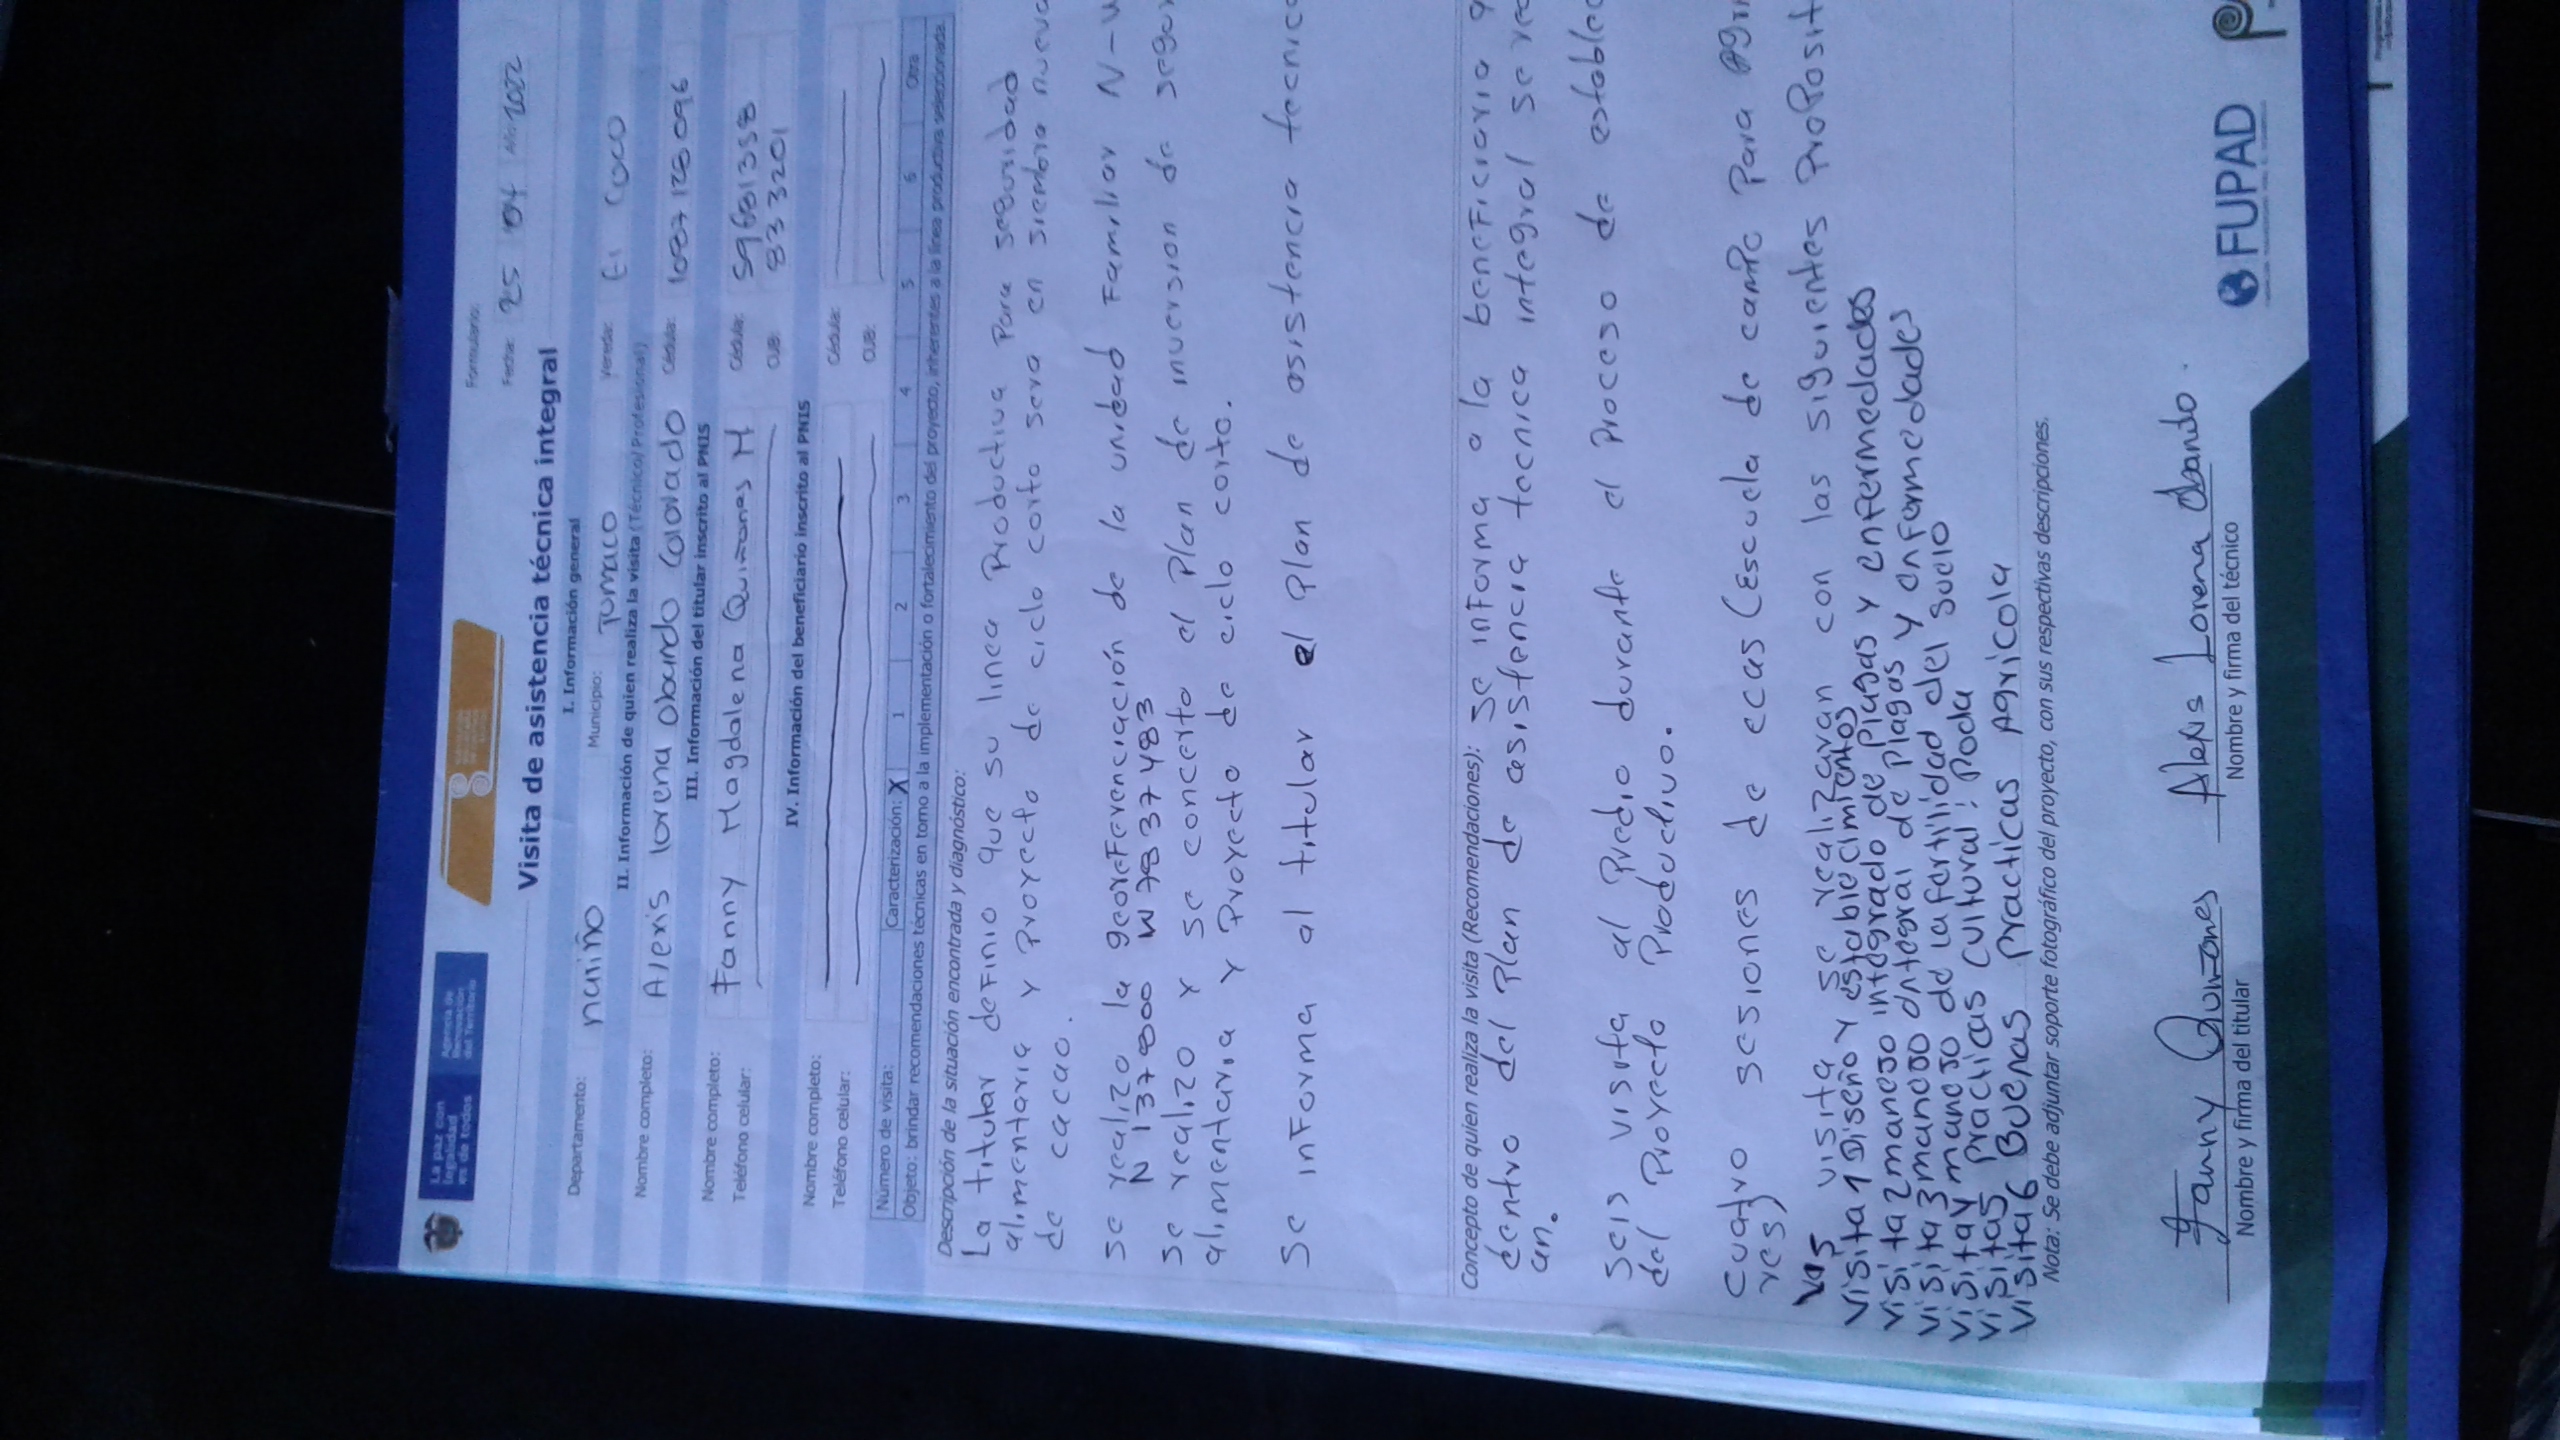 La paz con
legalidad
es de todos
Agencia de
Renovación
del Territorio
Formulario:
Fecha: 25 04 Año 2022
Visita de asistencia técnica integral
I. Información general
Departamento: nariño Municipio: Tumaco Vereda: El Coco
II. Información de quien realiza la visita (Técnico/ Profesional)
Nombre completo: Alexis lorena Obando Colorado Cédula: 1087128096
III. Información del titular inscrito al PNIS
Nombre completo: Fanny Magdalena Quiñones M Cédula: 59681358
Teléfono celular: CUB: 833201
IV. Información del beneficiario inscrito al PNIS
Nombre completo: Cédula:
Teléfono celular: CUB:
Número de visita: Caracterización: X 1 2 3 4 5 6 Otra
Objeto: brindar recomendaciones técnicas en torno a la implementación o fortalecimiento del proyecto, inherentes a la línea productiva seleccionada.
Descripción de la situación encontrada y diagnóstico:
La titular definio que su linea Productiva Para seguridad
alimentaria y Proyecto de ciclo corto sera en siembra nueva
de cacao.
se realizo la georeferenciación de la unidad Familiar N-W
N 137 800 W 78 37 483
se realizo y se concerto el Plan de inversion de segur
alimentaria y Proyecto de ciclo corto.
Se informa al titular el Plan de asistencia tecnica
Concepto de quien realiza la visita (Recomendaciones): Se informa a la beneficiaria q
dentro del Plan de asistencia tecnica integral se rea
an.
Seis visita al Predio durante el Proceso de establec
del Proyecto Productivo.
cuatro sesiones de ecas (Escuela de campo Para agri
res)
las visita se realizaran con las siguientes ProPosit
Visita 1 Diseño y establecimientos
visita 2 manejo integrado de plagas y enfermedades
visita 3 manejo integral de plagas y enformedades
visita 4 manejo de la fertilidad del suelo
visita 5 practicas cultural: Poda
visita 6 Buenas practicas Agricola
Nota: Se debe adjuntar soporte fotográfico del proyecto, con sus respectivas descripciones.
Fanny Quiñones Alexis Lorena Obando.
Nombre y firma del titular Nombre y firma del técnico
FUPAD